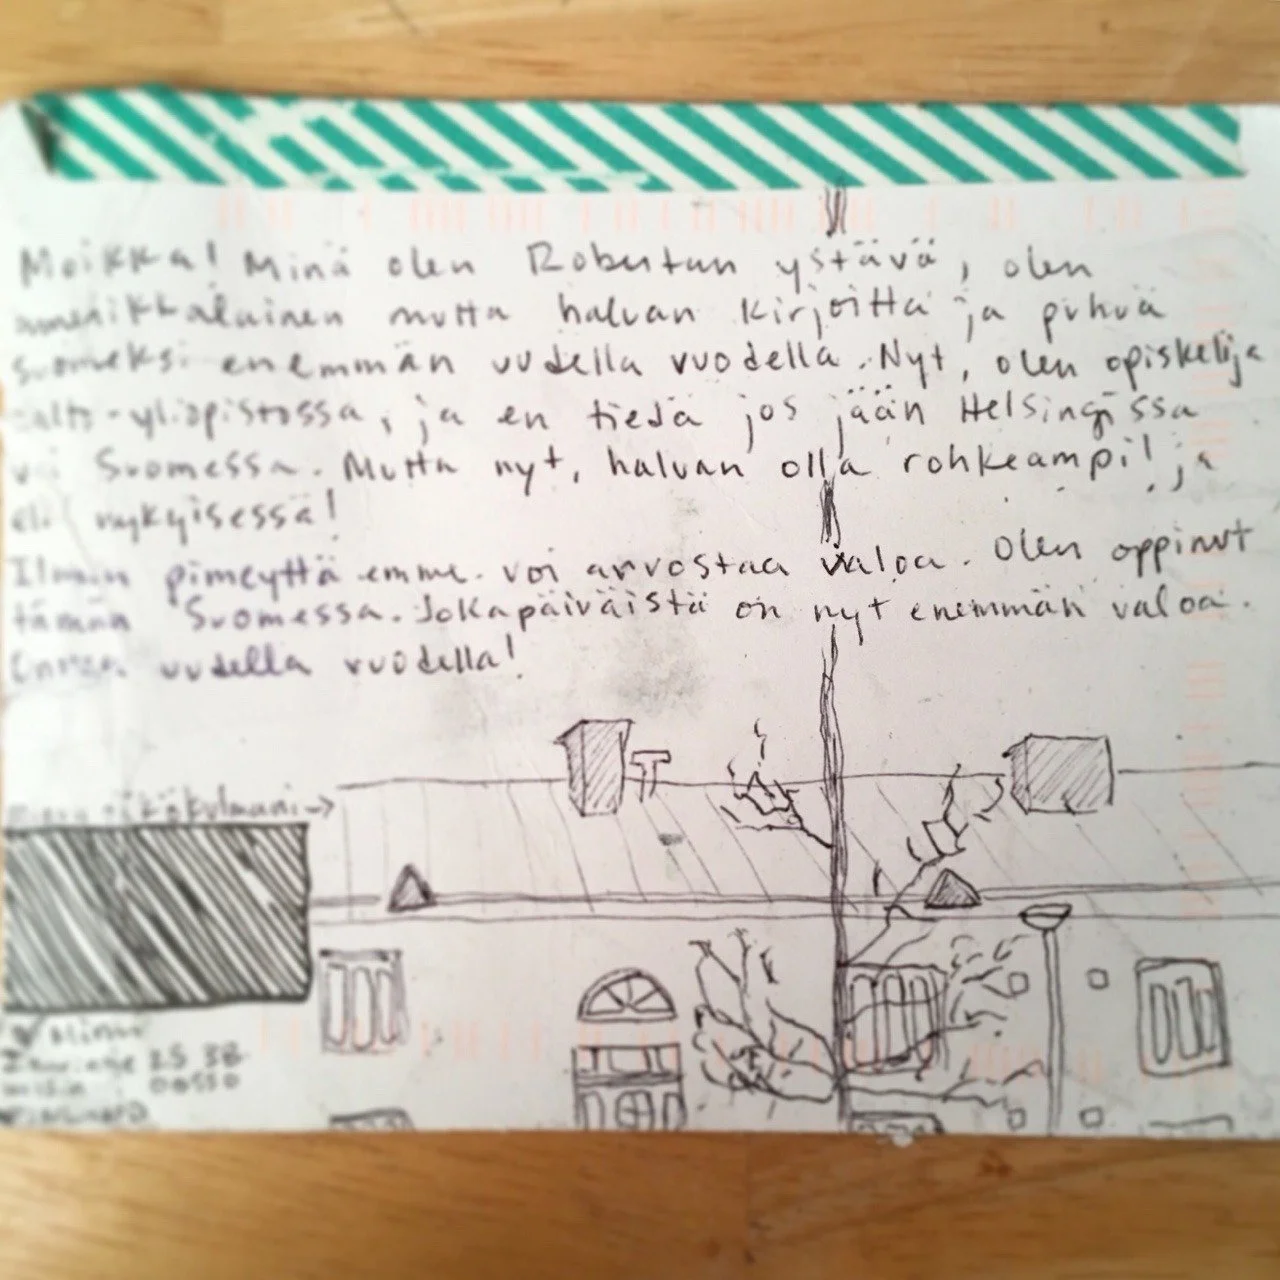 Moikka! Minä olen Robertan ystävä, olen
amerikkalainen mutta haluan kirjoitta ja puhua
suomeksi enemmän uudella vuodella. Nyt, olen opiskelija
aalto-yliopistossa, ja en tiedä jos jään Helsingissa
vai Suomessa. Mutta nyt, haluan olla rohkeampi! ja
eli nykyisessä!
Ilman pimeyttä emme voi arvostaa valoa. Olen oppinut
tämän Suomessa. Jokapäiväistä on nyt enemmän valoa.
uudella vuodella!
näkökulmani →